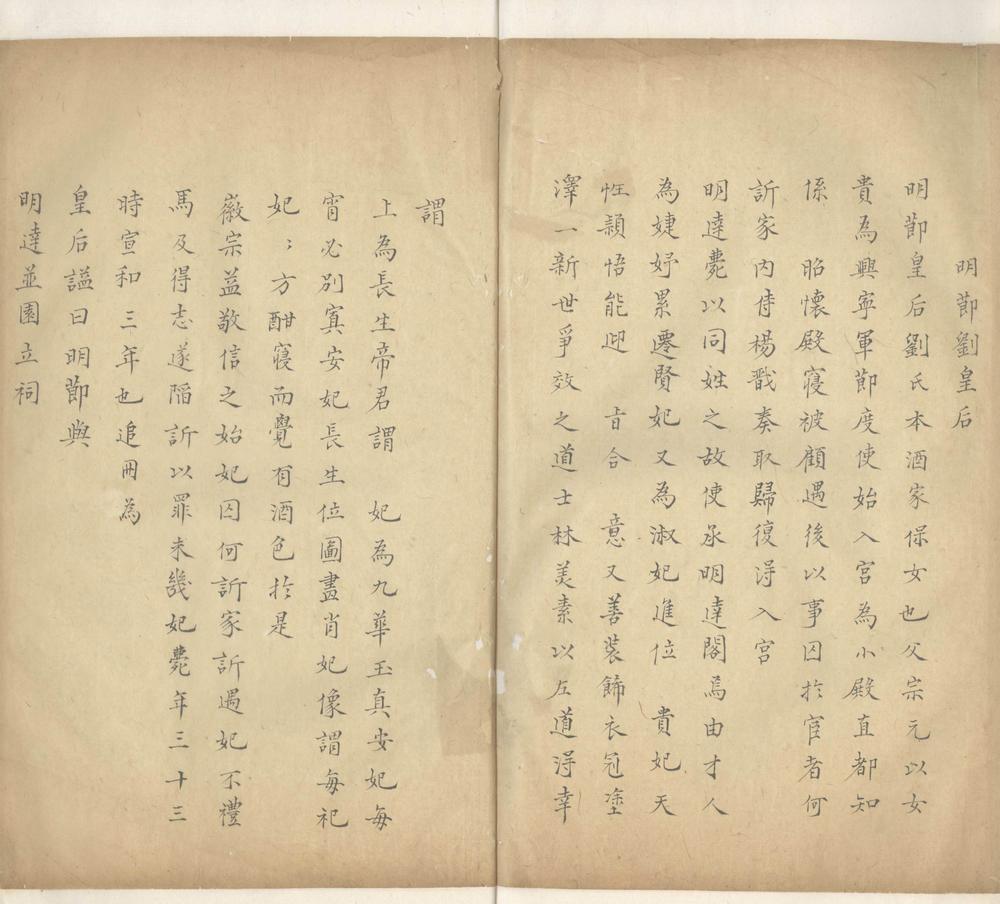 明節劉皇后
明節皇后劉氏本酒家保女也父宗元以女
貴為興寧軍節度使始入宮為小殿直都知
係 昭懷殿寢被顧遇後以事囚於宦者何
訢家內侍楊戩奏取歸復淂入宮
明達薨以同姓之故使承明達閣焉由才人
為婕妤累遷賢妃又為淑妃進位 貴妃天
性頴悟能迎 㫖合 意又善裝飾衣冠塗
澤一新世爭效之道士林㚑素以左道淂幸
謂
上為長生帝君謂 妃為九華玉真安妃每
宵必別寘安妃長生位圖畫肖妃像謂每祀
妃〻方酣寢而覺有酒色於是
徽宗益敬信之始妃囚何訢家訢遇妃不禮
馬及得志遂䧟訢以罪未幾妃薨年三十三
時宣和三年也追冊為
皇后謚曰明節與
明達並園立祠